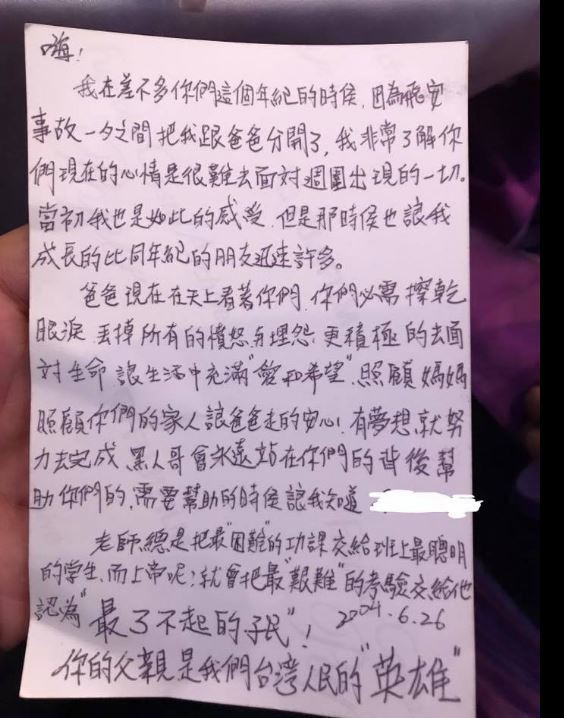 嗨!
我在差不多你們這個年紀的時候,因為飛安
事故一夕之間把我跟爸爸分開了,我非常了解你
們現在的心情是很難去面對週圍出現的一切。
當初我也是如此的感受,但是那時候也讓我
成長的比同年紀的朋友迅速許多。
爸爸現在在天上看著你們,你們必需擦乾
眼淚,丟掉所有的憤怒与埋怨,更積極的去面
對生命,讓生活中充滿"愛和希望",照顧媽媽
照顧你們的家人讓爸爸走的安心!有夢想,就努
力去完成,黑人哥會永遠站在你們的背後幫
助你們的,需要幫助的時候讓我知道
老師總是把最"困難"的功課交給班上最聰明
的學生,而上帝呢?就會把最"艱難"的考驗交給他
認為"最了不起的子民"! 2004.6.26
你的父親是我們台灣人民的"英雄"